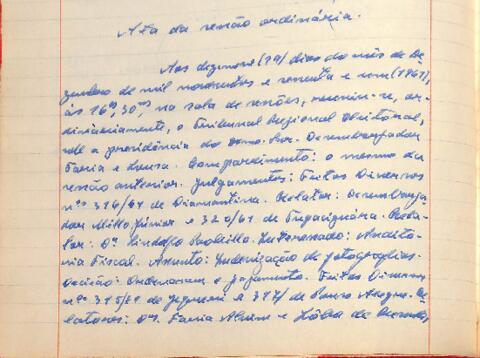 Ata da sessão ordinária.
Aos dezenove (19) dias do mês de De-
zembro de mil novecentos e sessenta e um (1961),
às 16hs,30ms, na sala de sessões, reuniu-se, or-
dinàriamente, o Tribunal Regional Eleitoral,
sob a presidência do Exmo. Snr. Desembargador
Faria e Sousa. Comparecimento: o mesmo da
sessão anterior. Julgamentos: Feitos Diversos
nºs 316/61 de Diamantina. Relator: Desembarga-
dor Mello Júnior e 320/61 de Tupaciguára. Rela-
tor: Dr. Lindolfo Paoliello. Interessado: Audito-
ria Fiscal. Assunto: Indenização de fotografias.
Decisão: Ordenaram o pagamento. Feitos Diversos
nºs 315/61 de Jequeri e 317/ de Pouso Alegre. Re-
latores: Drs. Faria Alvim e